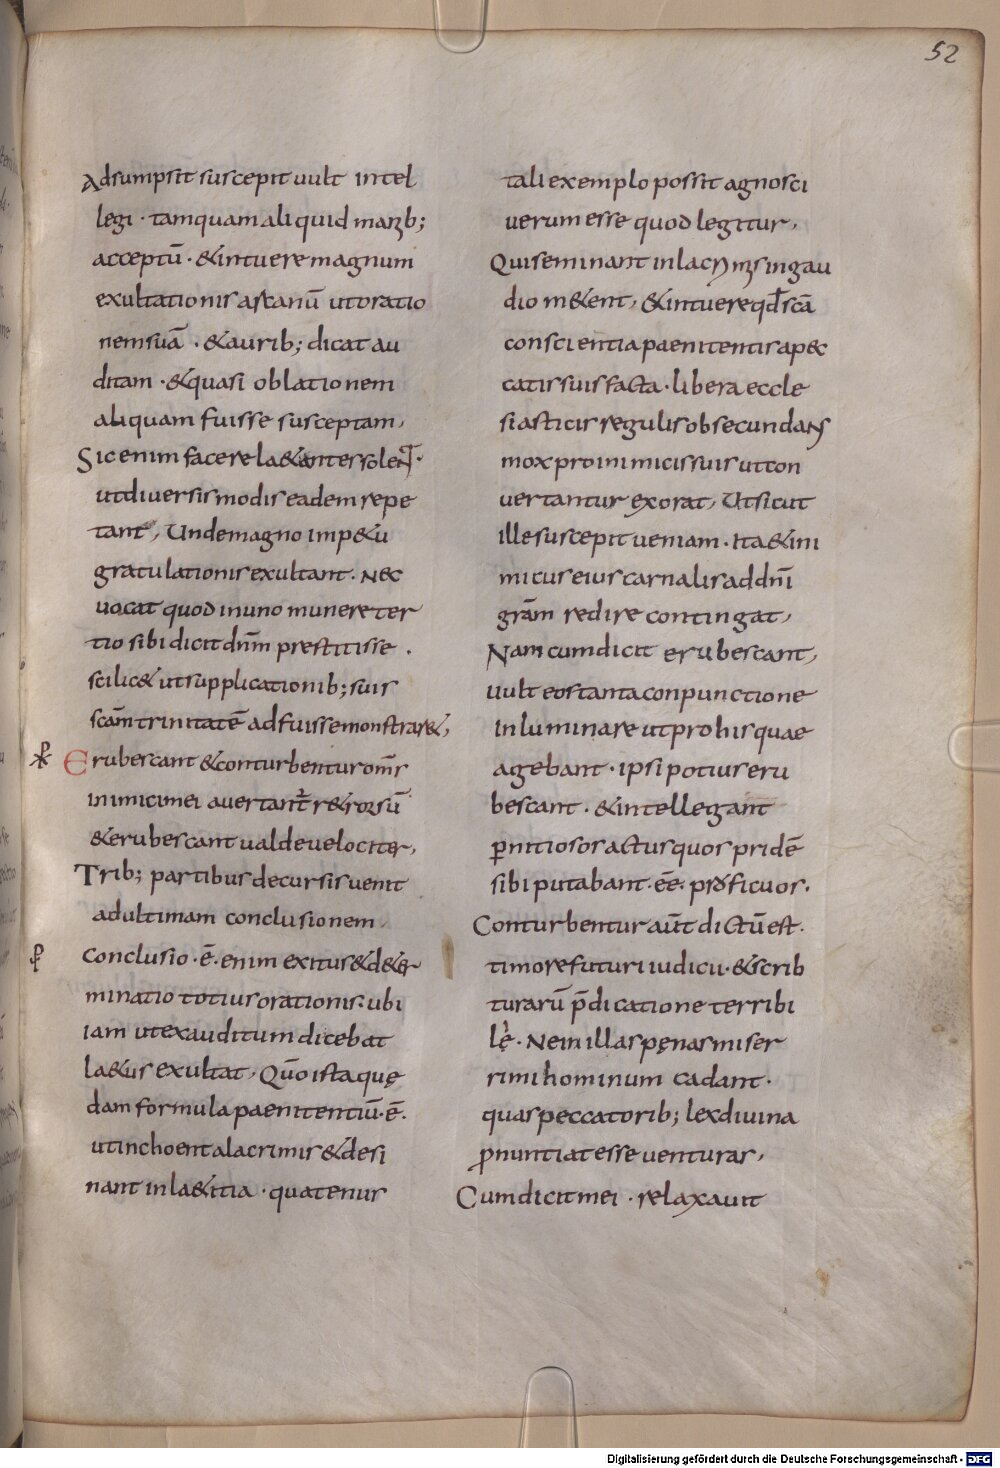 52
Adsumpsit suscepit uult intel
legi · tamquam aliquid manib;
acceptū · & intuere magnum
exultationis arcanū ut oratio
nem suā · & aurib; dicat au
ditam · & quasi oblationem
aliquam fuisse susceptam,
Sic enim facere la&antes solent ·
ut diuersis modis eadem repe
tant, Unde magno imp&u
gratulationis exultant · Nec
uacat quod in uno munere ter
tio sibi dicit dn̄m prestitisse .
scilic& ut supplicationib; suis
scām trinitatē adfuisse monstrar&,
Erubescant & conturbentur om̄s
inimici mei auertant r&rorsū
& erubescant ualde uelociter,
Trib; partibus decursis uenit
ad ultimam conclusionem
Conclusio · ē · enim exitus & d&er
minatio totius orationis · ubi
iam ut exauditum dicebat
la&us exultat, Quō ista quę
dam formula paenitentiū · ē ·
ut inchoent a lacrimis & desi
nant in la&itia · quatenus
tali exemplo possit agnosci
uerum esse quod legitur,
Qui seminant in lacrymis in gau
dio m&ent, & intuere qd scā
conscientia paenitentis a pec
catis suis facta · libera eccle
siasticis regulis obsecundans
mox pro inimicis suis ut con
uertantur exorat, Ut sicut
ille suscepit ueniam · Ita & ini
micus eius carnalis ad dn̄i
grām redire contingat,
Nam cum dicit erubescant,
uult eos tanta conpunctione
inluminare ut pro his quae
agebant · ipsi potius eru
bescant · & intellegant
p̄nitiosos actus quos pridē
sibi putabant · eē · proficuos ·
Conturbentur aūt dictū est ·
timore futuri iudicii · & scrib
turarū p̄dicatione terribi
lę · Ne in illas pęnas miser
rimi hominum cadant ·
quas peccatorib; lex diuina
p̄nuntiat esse uenturas,
Cum dicit mei · relaxauit
Digitalisierung gefördert durch die Deutsche Forschungsgemeinschaft - DFG